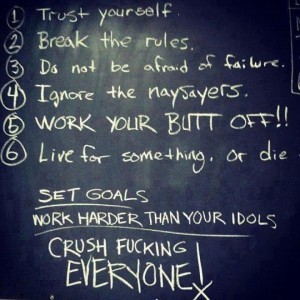 1 Trust yourself.
2 Break the rules.
3 Do not be afraid of failure.
4 Ignore the naysayers.
5 WORK YOUR BUTT OFF!!
6 Live for something, or die
SET GOALS
WORK HARDER THAN YOUR IDOLS
CRUSH FUCKING
EVERYONE!
X